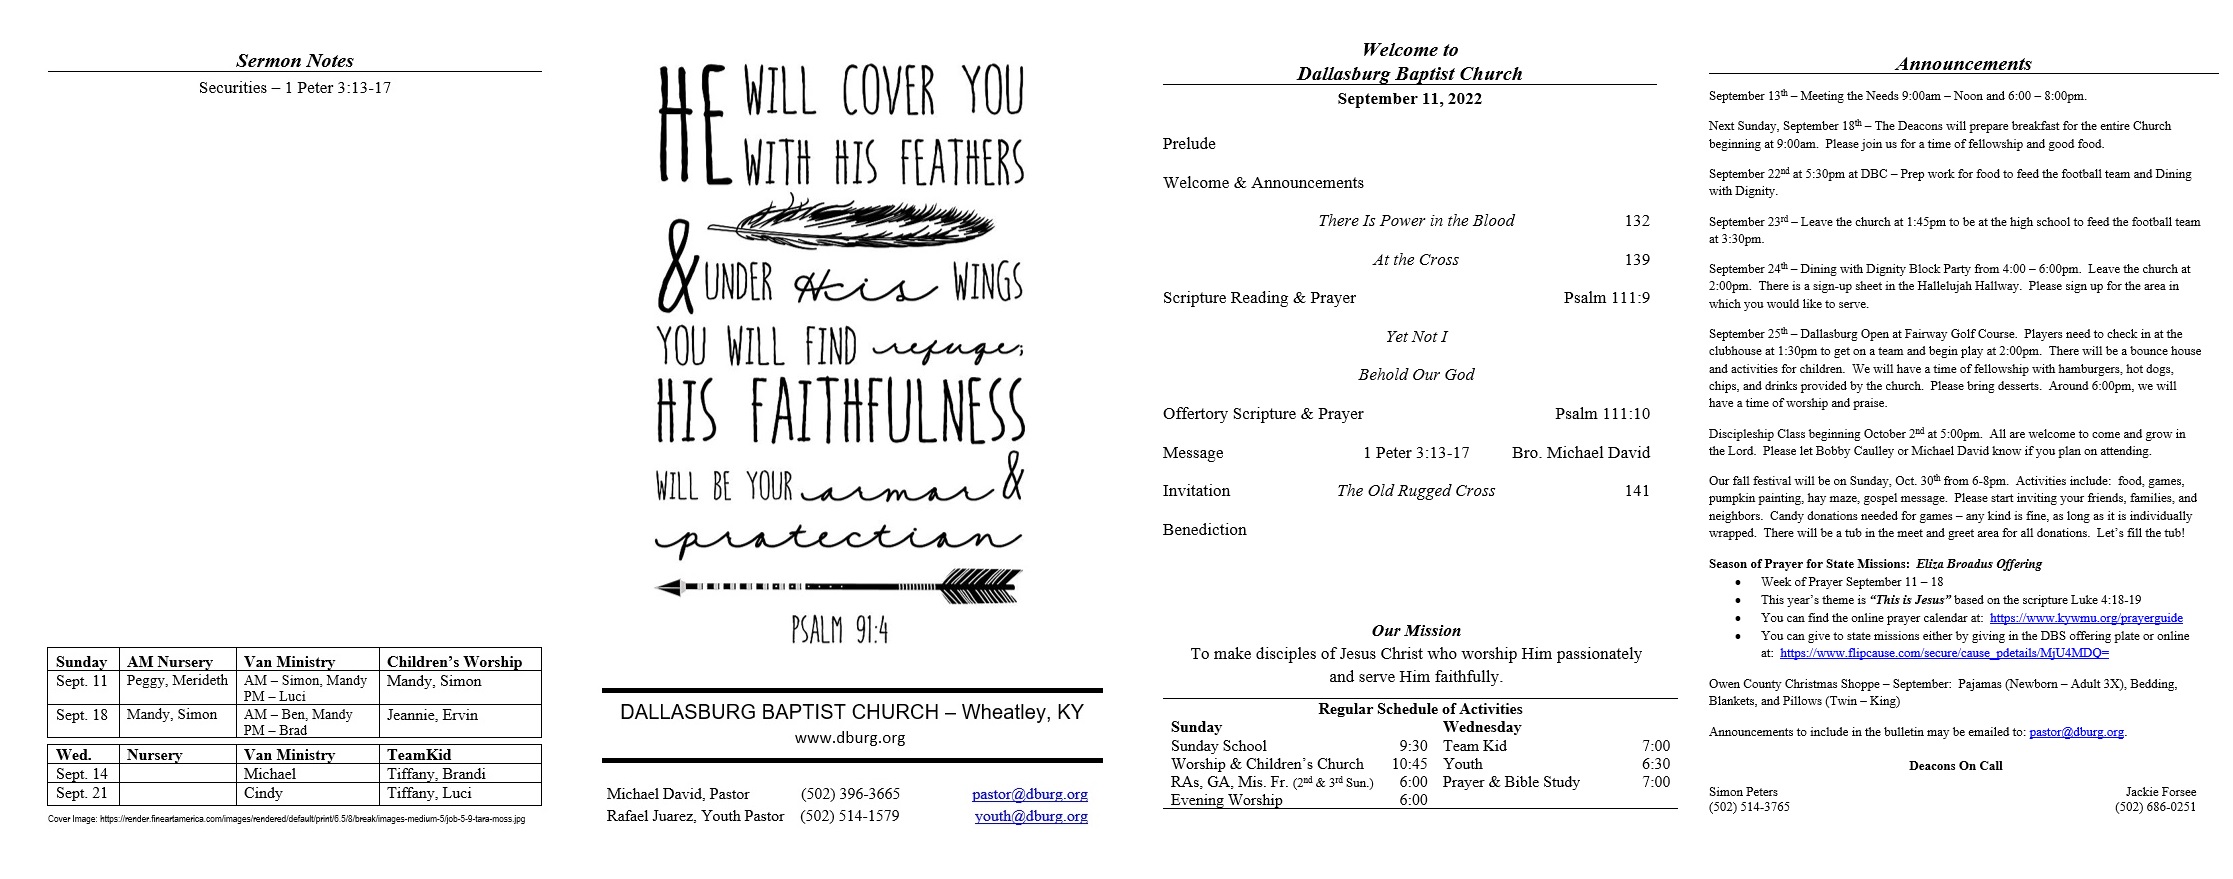 Sermon Notes
Securities – 1 Peter 3:13-17
Sunday AM Nursery Van Ministry Children's Worship
Sept. 11 Peggy, Merideth AM – Simon, Mandy Mandy, Simon
PM – Luci
Sept. 18 Mandy, Simon AM – Ben, Mandy Jeannie, Ervin
PM – Brad
Wed. Nursery Van Ministry TeamKid
Sept. 14 Michael Tiffany, Brandi
Sept. 21 Cindy Tiffany, Luci
Cover Image: https://render.fineartamerica.com/images/rendered/default/print/6.5/8/break/images-medium-5/job-5-9-tara-moss.jpg
HE WILL COVER YOU
WITH HIS FEATHERS
& UNDER His WINGS
YOU WILL FIND refuge;
HIS FAITHFULNESS
WILL BE YOUR armor &
protection
PSALM 91:4
DALLASBURG BAPTIST CHURCH – Wheatley, KY
www.dburg.org
Michael David, Pastor (502) 396-3665 pastor@dburg.org
Rafael Juarez, Youth Pastor (502) 514-1579 youth@dburg.org
Welcome to
Dallasburg Baptist Church
September 11, 2022
Prelude
Welcome & Announcements
There Is Power in the Blood 132
At the Cross 139
Scripture Reading & Prayer Psalm 111:9
Yet Not I
Behold Our God
Offertory Scripture & Prayer Psalm 111:10
Message 1 Peter 3:13-17 Bro. Michael David
Invitation The Old Rugged Cross 141
Benediction
Our Mission
To make disciples of Jesus Christ who worship Him passionately
and serve Him faithfully.
Regular Schedule of Activities
Sunday Wednesday
Sunday School 9:30 Team Kid 7:00
Worship & Children's Church 10:45 Youth 6:30
RAs, GA, Mis. Fr. (2nd & 3rd Sun.) 6:00 Prayer & Bible Study 7:00
Evening Worship 6:00
Announcements
September 13th – Meeting the Needs 9:00am – Noon and 6:00 – 8:00pm.
Next Sunday, September 18th – The Deacons will prepare breakfast for the entire Church
beginning at 9:00am. Please join us for a time of fellowship and good food.
September 22nd at 5:30pm at DBC – Prep work for food to feed the football team and Dining
with Dignity.
September 23rd – Leave the church at 1:45pm to be at the high school to feed the football team
at 3:30pm.
September 24th – Dining with Dignity Block Party from 4:00 – 6:00pm. Leave the church at
2:00pm. There is a sign-up sheet in the Hallelujah Hallway. Please sign up for the area in
which you would like to serve.
September 25th – Dallasburg Open at Fairway Golf Course. Players need to check in at the
clubhouse at 1:30pm to get on a team and begin play at 2:00pm. There will be a bounce house
and activities for children. We will have a time of fellowship with hamburgers, hot dogs,
chips, and drinks provided by the church. Please bring desserts. Around 6:00pm, we will
have a time of worship and praise.
Discipleship Class beginning October 2nd at 5:00pm. All are welcome to come and grow in
the Lord. Please let Bobby Caulley or Michael David know if you plan on attending.
Our fall festival will be on Sunday, Oct. 30th from 6-8pm. Activities include: food, games,
pumpkin painting, hay maze, gospel message. Please start inviting your friends, families, and
neighbors. Candy donations needed for games – any kind is fine, as long as it is individually
wrapped. There will be a tub in the meet and greet area for all donations. Let's fill the tub!
Season of Prayer for State Missions: Eliza Broadus Offering
• Week of Prayer September 11 – 18
• This year's theme is "This is Jesus" based on the scripture Luke 4:18-19
• You can find the online prayer calendar at: https://www.kywmu.org/prayerguide
• You can give to state missions either by giving in the DBS offering plate or online
at: https://www.flipcause.com/secure/cause_pdetails/MjU4MDQ=
Owen County Christmas Shoppe – September: Pajamas (Newborn – Adult 3X), Bedding,
Blankets, and Pillows (Twin – King)
Announcements to include in the bulletin may be emailed to: pastor@dburg.org.
Deacons On Call
Simon Peters Jackie Forsee
(502) 514-3765 (502) 686-0251